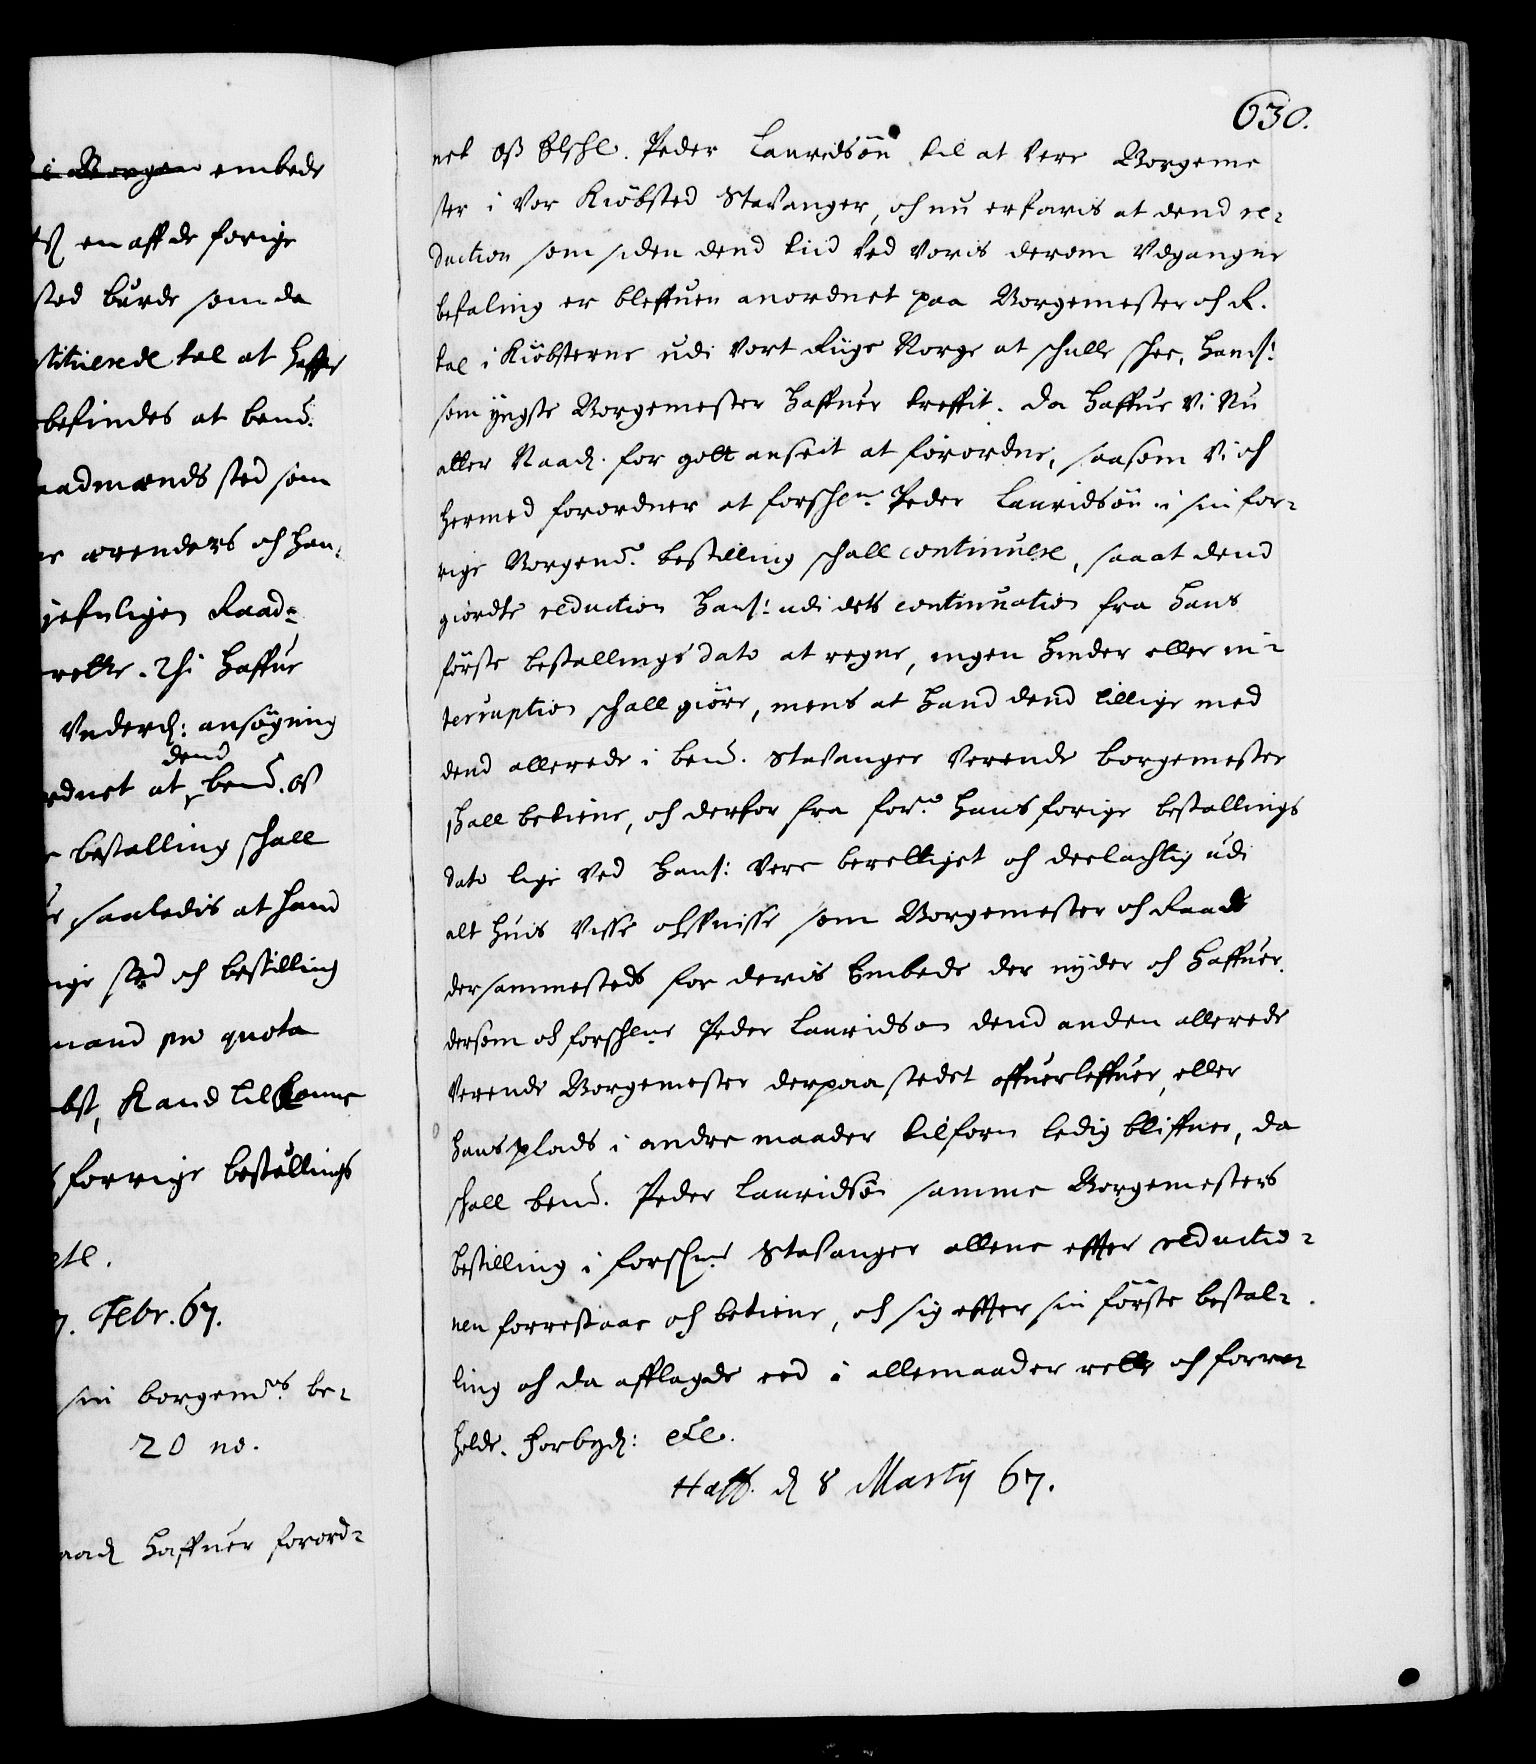 i Borgen embede
en aff de forige
sted burde som da
stituerede tal at haffe
befindes at bemt.
aadmænds sted som
er anderes och han,
jefnligen Raad-
rette. Thi haffue
Underd: ansøgning
dend
rdnet at bemt. os
bestalling schall
saaledis at hand
rige sted och bestilling
mand sin quota
bst, kand tilkomme
forrige bestallings
etc.
7. Febr. 67.
sin borgemrs be-
20 no.
aad haffuer forord-
630.
net oß Elschl. Peder Lauridsøn til at were Borgeme
ster i Vor Kiøbsted Stavanger, och nu erfaris at dend re-
duction som siden dend tiid ved Voris derom Udgangne
befaling er bleffuen anordnet paa Borgemester och R.
tal i Kiøbsterne udi Vort Riige Norge at schulle schee, hans:
som yngste Borgemester haffuer treffit. Da haffue Vi Nu
aller Naad. for gott anseet at forordne, saasom Vi och
hermed forordner at forschne Peder Lauridsøn i sin for-
rige Borgemr. bestilling schall continuere, saa at dend
giordte reduction hans: udi dets continuation fra hans
første bestallings dato at regne, ingen hinder eller in-
terruption schall giøre, mens at hand dend tillige med
dend allerede i bemt. Stavanger Verende borgemester
schall betiene, och derfor fra forne hans forige bestallings
dato lige ved hans: Vere berettiget och deelachtig udi
alt huis Visse och uvisse som Borgemester och Raads
dersammesteds for deris Embede der nyder och haffuer.
dersom och forschne Peder Lauridsøn dend anden allerede
Verende Borgemester derpaa stedet offuerleffuer, eller
hans plads i andre maader tilforn ledig bliffuer, da
schall bemt. Peder Lauridsøn samme Borgemesters
bestilling i forschne Stavanger allene effter reductio-
nen forrestaae och betiene, och sig effter sin første bestal-
ling och da afflagde eed i alle maader rette och forre-
holde. Forbyd: etc.
Haff. d 8 Martij 67.